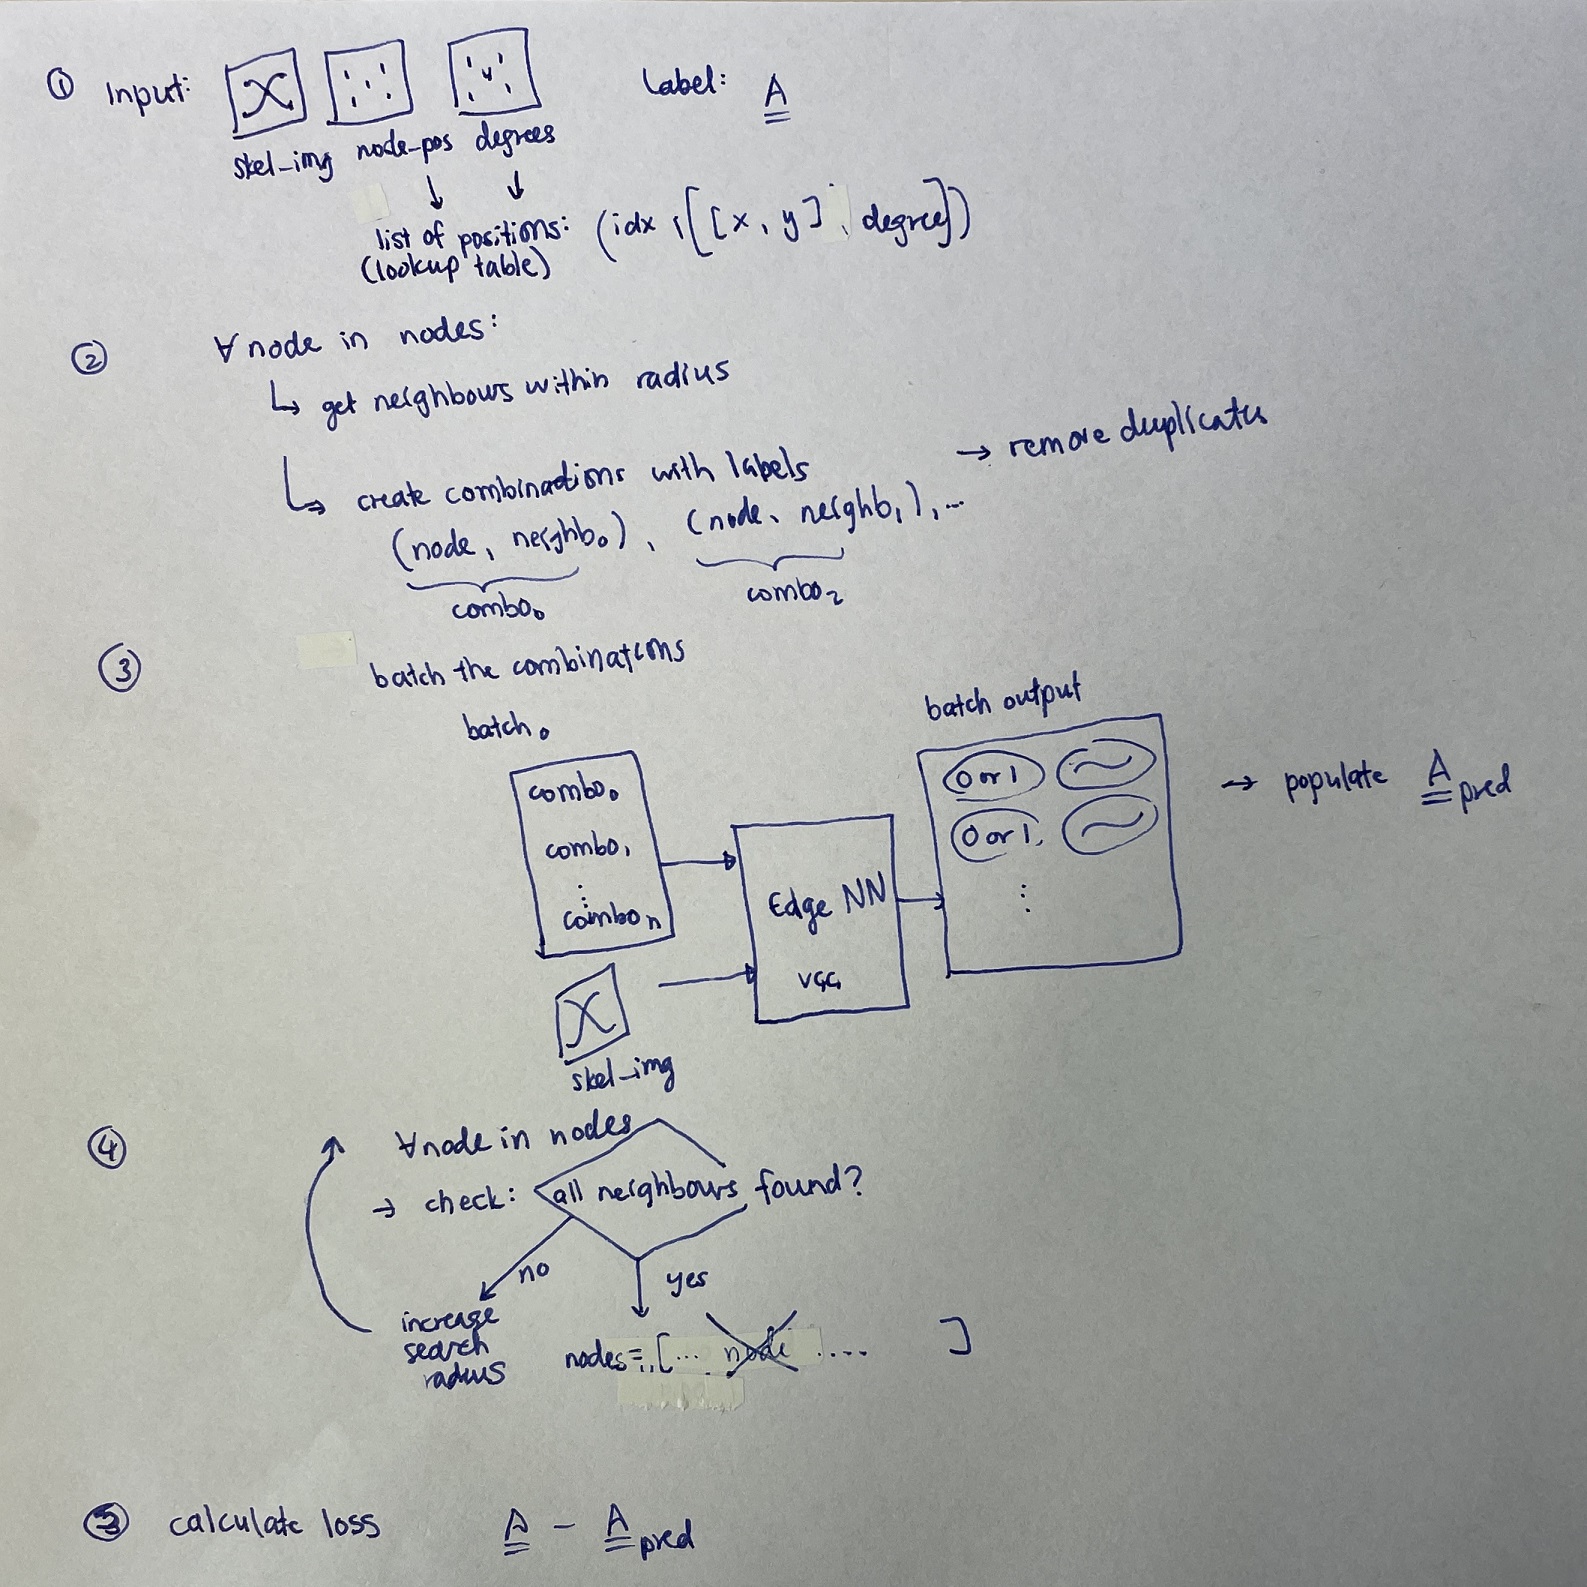 ① Input: Label: A
skel_img node_pos degrees
list of positions: (idx, [[x, y], degree])
(lookup table)
② ∀ node in nodes:
↳ get neighbours within radius
↳ create combinations with labels → remove duplicates
(node, neighb₀), (node, neighb₁), ...
combo₀ combo₂
③ batch the combinations
batch₀ batch output
combo₀ 0 or 1 → populate A pred
combo₁ 0 or 1
⋮ ⋮
combo n Edge NN
VGG
skel_img
④ ∀ node in nodes
→ check: all neighbours found?
no yes
increase
search
radius
nodes = [... node .... ]
⑤ calculate loss A - A pred